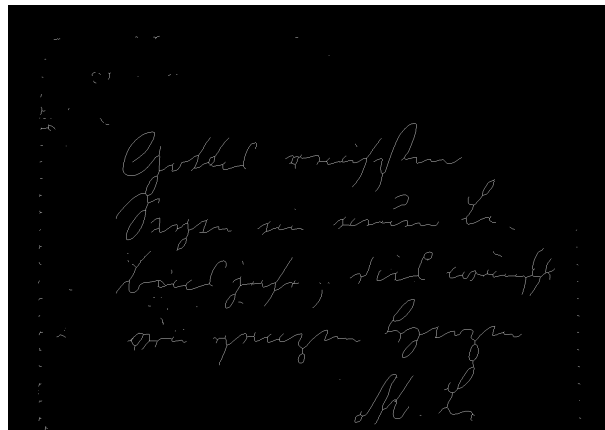 Gottes reichsten
Segen im neuen Le-
bensjahr, dies wünscht
ganzem Herzen
M. L.